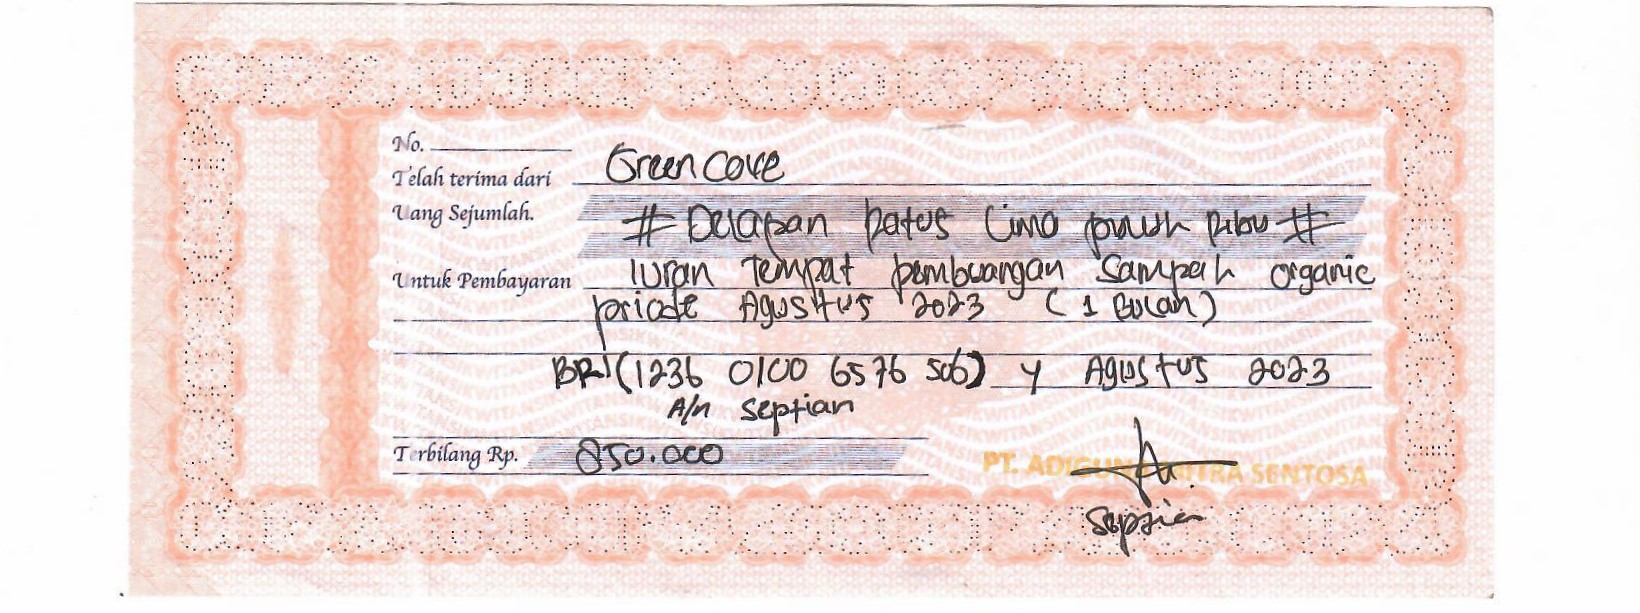 No.
Telah terima dari Green Cove
Uang Sejumlah. # Delapan ratus lima puluh Ribu #
Untuk Pembayaran Iuran Tempat pembuangan Sampah organic
priode Agustus 2023 (1 Bulan)
BRI (1236 0100 6576 506) y Agustus 2023
A/n Septian
Terbilang Rp. 850.000
PT. ADIGUNA MITRA SENTOSA
Septian